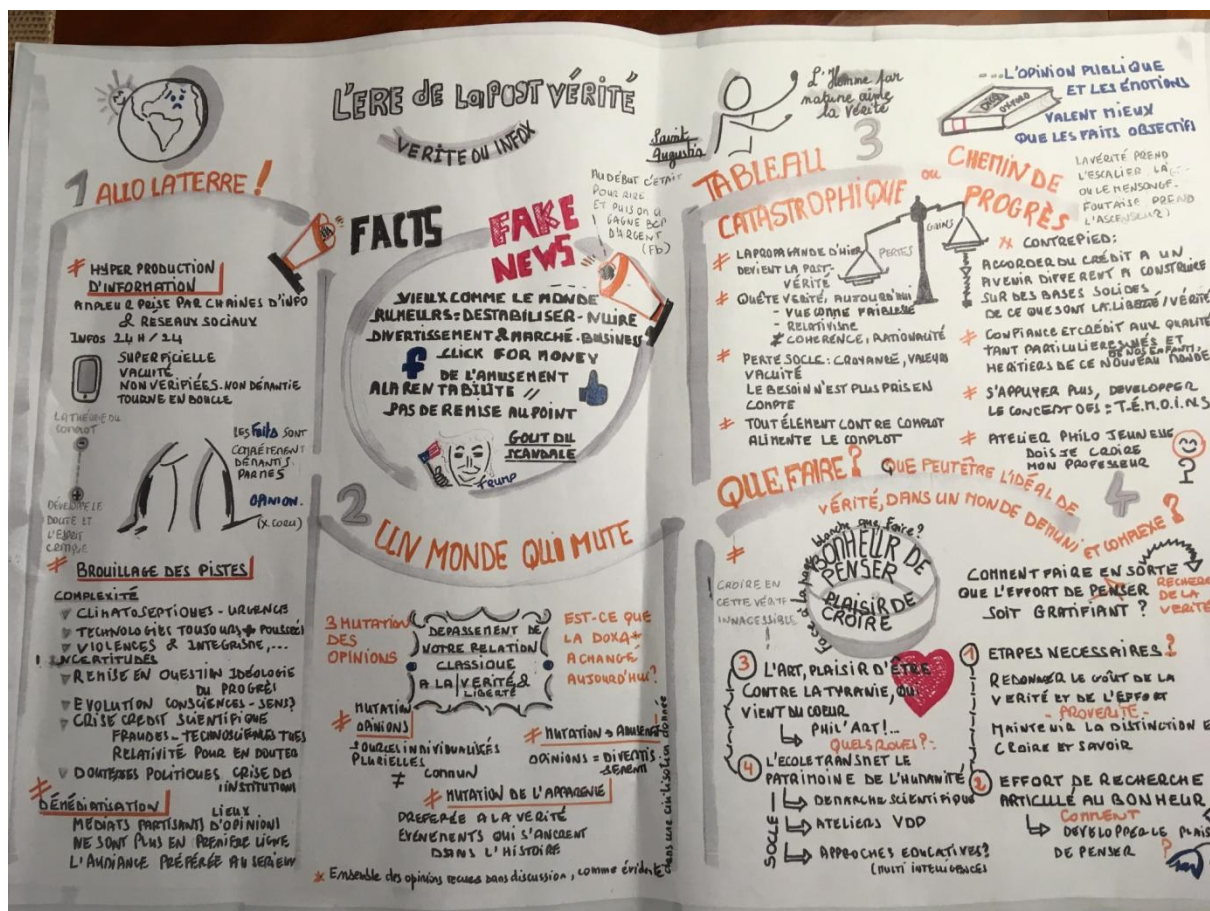 L'ERE de La POST VÉRITÉ
VERITE OU INFOX
1 ALLO LA TERRE !
# HYPER PRODUCTION
D'INFORMATION
AMPLEUR PRISE PAR CHAINES D'INFO
& RÉSEAUX SOCIAUX
INFOS 24H/24
SUPERFICIELLE
VACUITÉ
NON VERIFIÉES. NON DÉMANTIE
TOURNE EN BOUCLE
LA THÉORIE DU
COMPLOT
DÉVELOPPE LE
DOUTE ET
L'ESPRIT
CRITIQUE
LES Faits SONT
DÉMANTIS.
OPINION.
# BROUILLAGE DES PISTES
COMPLEXITÉ
CLIMATOSEPTIQUES - URGENCE
TECHNOLOGIES TOUJOURS + POUSSÉES
VIOLENCES & INTEGRISME,...
! INCERTITUDES
REMISE EN QUESTION IDÉOLOGIE
DU PROGRÈS
EVOLUTION CONSCIENCES - SENS?
CRISE CREDIT SCIENTIFIQUE
FRAUDES - TECHNOSCIENCES TUES
RELATIVITÉ POUR EN DOUTER
DOUTEUSES POLITIQUES CRISE DES
INSTITUTION
# DÉMÉDIATISATION
LIEUX
MEDIATS PARTISANTS D'OPINIONS
NE SONT PLUS EN PREMIÈRE LIGNE
L'AUDIANCE PRÉFÉRÉE AU SERIEUX
FACTS
FAKE
NEWS
AU DÉBUT C'ÉTAIT
POUR RIRE
ET PUIS ON A
GAGNÉ BCP
D'ARGENT
(Fb)
VIEUX COMME LE MONDE
RUMEURS = DESTABILISER - NUIRE
DIVERTISSEMENT & MARCHÉ - BUSINESS
f CLICK FOR MONEY
DE L'AMUSEMENT
A LA RENTABILITÉ //
PAS DE REMISE AU POINT
GOUT DU
SCANDALE
TRUMP
2 UN MONDE QUI MUTE
3 MUTATION
DES
OPINIONS
DEPASSEMENT DE
NOTRE RELATION
CLASSIQUE
A LA VERITÉ &
LIBERTÉ
EST-CE QUE
LA DOXA *
A CHANGÉ
AUJOURD'HUI?
# MUTATION
OPINIONS
SOURCES INDIVIDUALISÉS
PLURIELLES
≠ COMMUN
# MUTATION → AMUSEMT
OPINIONS = DIVERTIS
SEMENT
# MUTATION DE L'APPARENCE
PREFEREE A LA VERITÉ
EVENEMENTS QUI S'ANCRENT
DANS L'HISTOIRE
* Ensemble des opinions recues sans discussion, comme évidente
dans une civilisation donnée
Saint
Augustin
L'Homme par
nature aime
la Vérité
DICO
OXFORD
...L'OPINION PUBLIQUE
ET LES ÉMOTIONS
VALENT MIEUX
QUE LES FAITS OBJECTIFS
3
TABLEAU
CATASTROPHIQUE
OU
CHEMIN DE
PROGRÈS
LA VÉRITÉ PREND
L'ESCALIER, LÀ
OU LE MENSONGE -
FOUTAISE PREND
L'ASCENSEUR)
PERTES
GAINS
# LA PROPAGANDE D'HIER
DEVIENT LA POST-
VÉRITÉ
# QUÊTE VERITÉ, AUTOURD'HUI
- VUE COMME FAIBLESSE
- RELATIVISME
≠ COHERENCE, RATIONALITÉ
# PERTE SOCLE: CROYANCE, VALEURS
VACUITÉ
LE BESOIN N'EST PLUS PRIS EN
COMPTE
# TOUT ÉLÉMENT CONTRE COMPLOT
ALIMENTE LE COMPLOT
CONTREPIED:
ACCORDER DU CRÉDIT A UN
AVENIR DIFFERENT A CONSTRUIRE
SUR DES BASES SOLIDES
DE CE QUE SONT LA LIBERTÉ/VÉRITÉ
# CONFIANCE ET CRÉDIT AUX QUALITÉ
TANT PARTICULIERES NÉS ET
DE NOS ENFANTS,
HERITIERS DE CE NOUVEAU MONDE
# S'APPUYER PLUS, DEVELOPPER
LE CONCEPT DES: T.É.M.O.I.N.S
# ATELIER PHILO JEUNESSE
DOIS JE CROIRE
MON PROFESSEUR
4
QUE FAIRE? QUE PEUT ÊTRE L'IDÉAL DE
VÉRITÉ, DANS UN MONDE DEMUNI ET COMPLEXE?
#
CROIRE EN
CETTE VÉRITÉ
INNACESSIBLE
!
Face à la page blanche que faire?
BONHEUR DE
PENSER
PLAISIR DE
CROIRE
COMMENT FAIRE EN SORTE
QUE L'EFFORT DE PENSER
SOIT GRATIFIANT ?
RECHERCHE
DE LA
VERITÉ
1 ETAPES NECESSAIRES?
REDONNER LE GOÛT DE LA
VERITÉ ET DE L'EFFORT
- PROVERITÉ -
MAINTENIR LA DISTINCTION E
CROIRE ET SAVOIR
2 EFFORT DE RECHERCHE
ARTICULÉ AU BONHEUR
COMMENT
DEVELOPPER LE PLAIS
DE PENSER ?
3 L'ART, PLAISIR D'ÊTRE
CONTRE LA TYRANIE, QUI
VIENT DU COEUR
PHIL'ART!...
4 L'ECOLE TRANSMET LE
PATRIMOINE DE L'HUMANITÉ
SOCLE
DEMARCHE SCIENTIFIQUE
ATELIERS VDP
APPROCHES EDUCATIVES?
(MULTI INTELLIGENCES